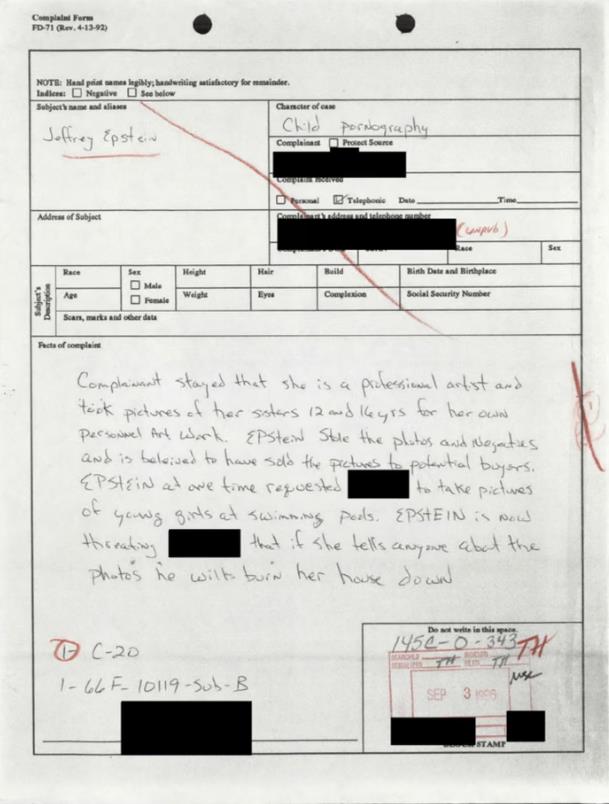 Complaint Form
FD-71 (Rev. 4-13-92)
NOTE: Hand print names legibly; handwriting satisfactory for remainder.
Indices: Negative See below
Subject's name and aliases
Jeffrey Epstein
Character of case
Child Pornography
Complainant Protect Source
Complaint received
Personal Telephonic Date Time
Address of Subject
Complainant's address and telephone number
(unpub)
Race Sex
Subject's Description
Race Sex Male Female Height Hair Build Birth Date and Birthplace
Age Weight Eyes Complexion Social Security Number
Scars, marks and other data
Facts of complaint
Complainant stayed that she is a professional artist and
took pictures of her sisters 12 and 16 yrs for her own
Personnel Art Work. EPStein Stole the photos and Negatives
and is beleived to have sold the pictures to potential buyers.
EPSTEIN at one time requested to take pictures
of young girls at swimming pools. EPSTEIN is now
threating that if she tells anyone about the
photos he will burn her house down
1- C-20
1-66F-10119-Sub-B
Do not write in this space.
145C-0-343 TH
SEARCHED INDEXED
SERIALIZED TH FILED TH
SEP 3 1996
BLOCK STAMP